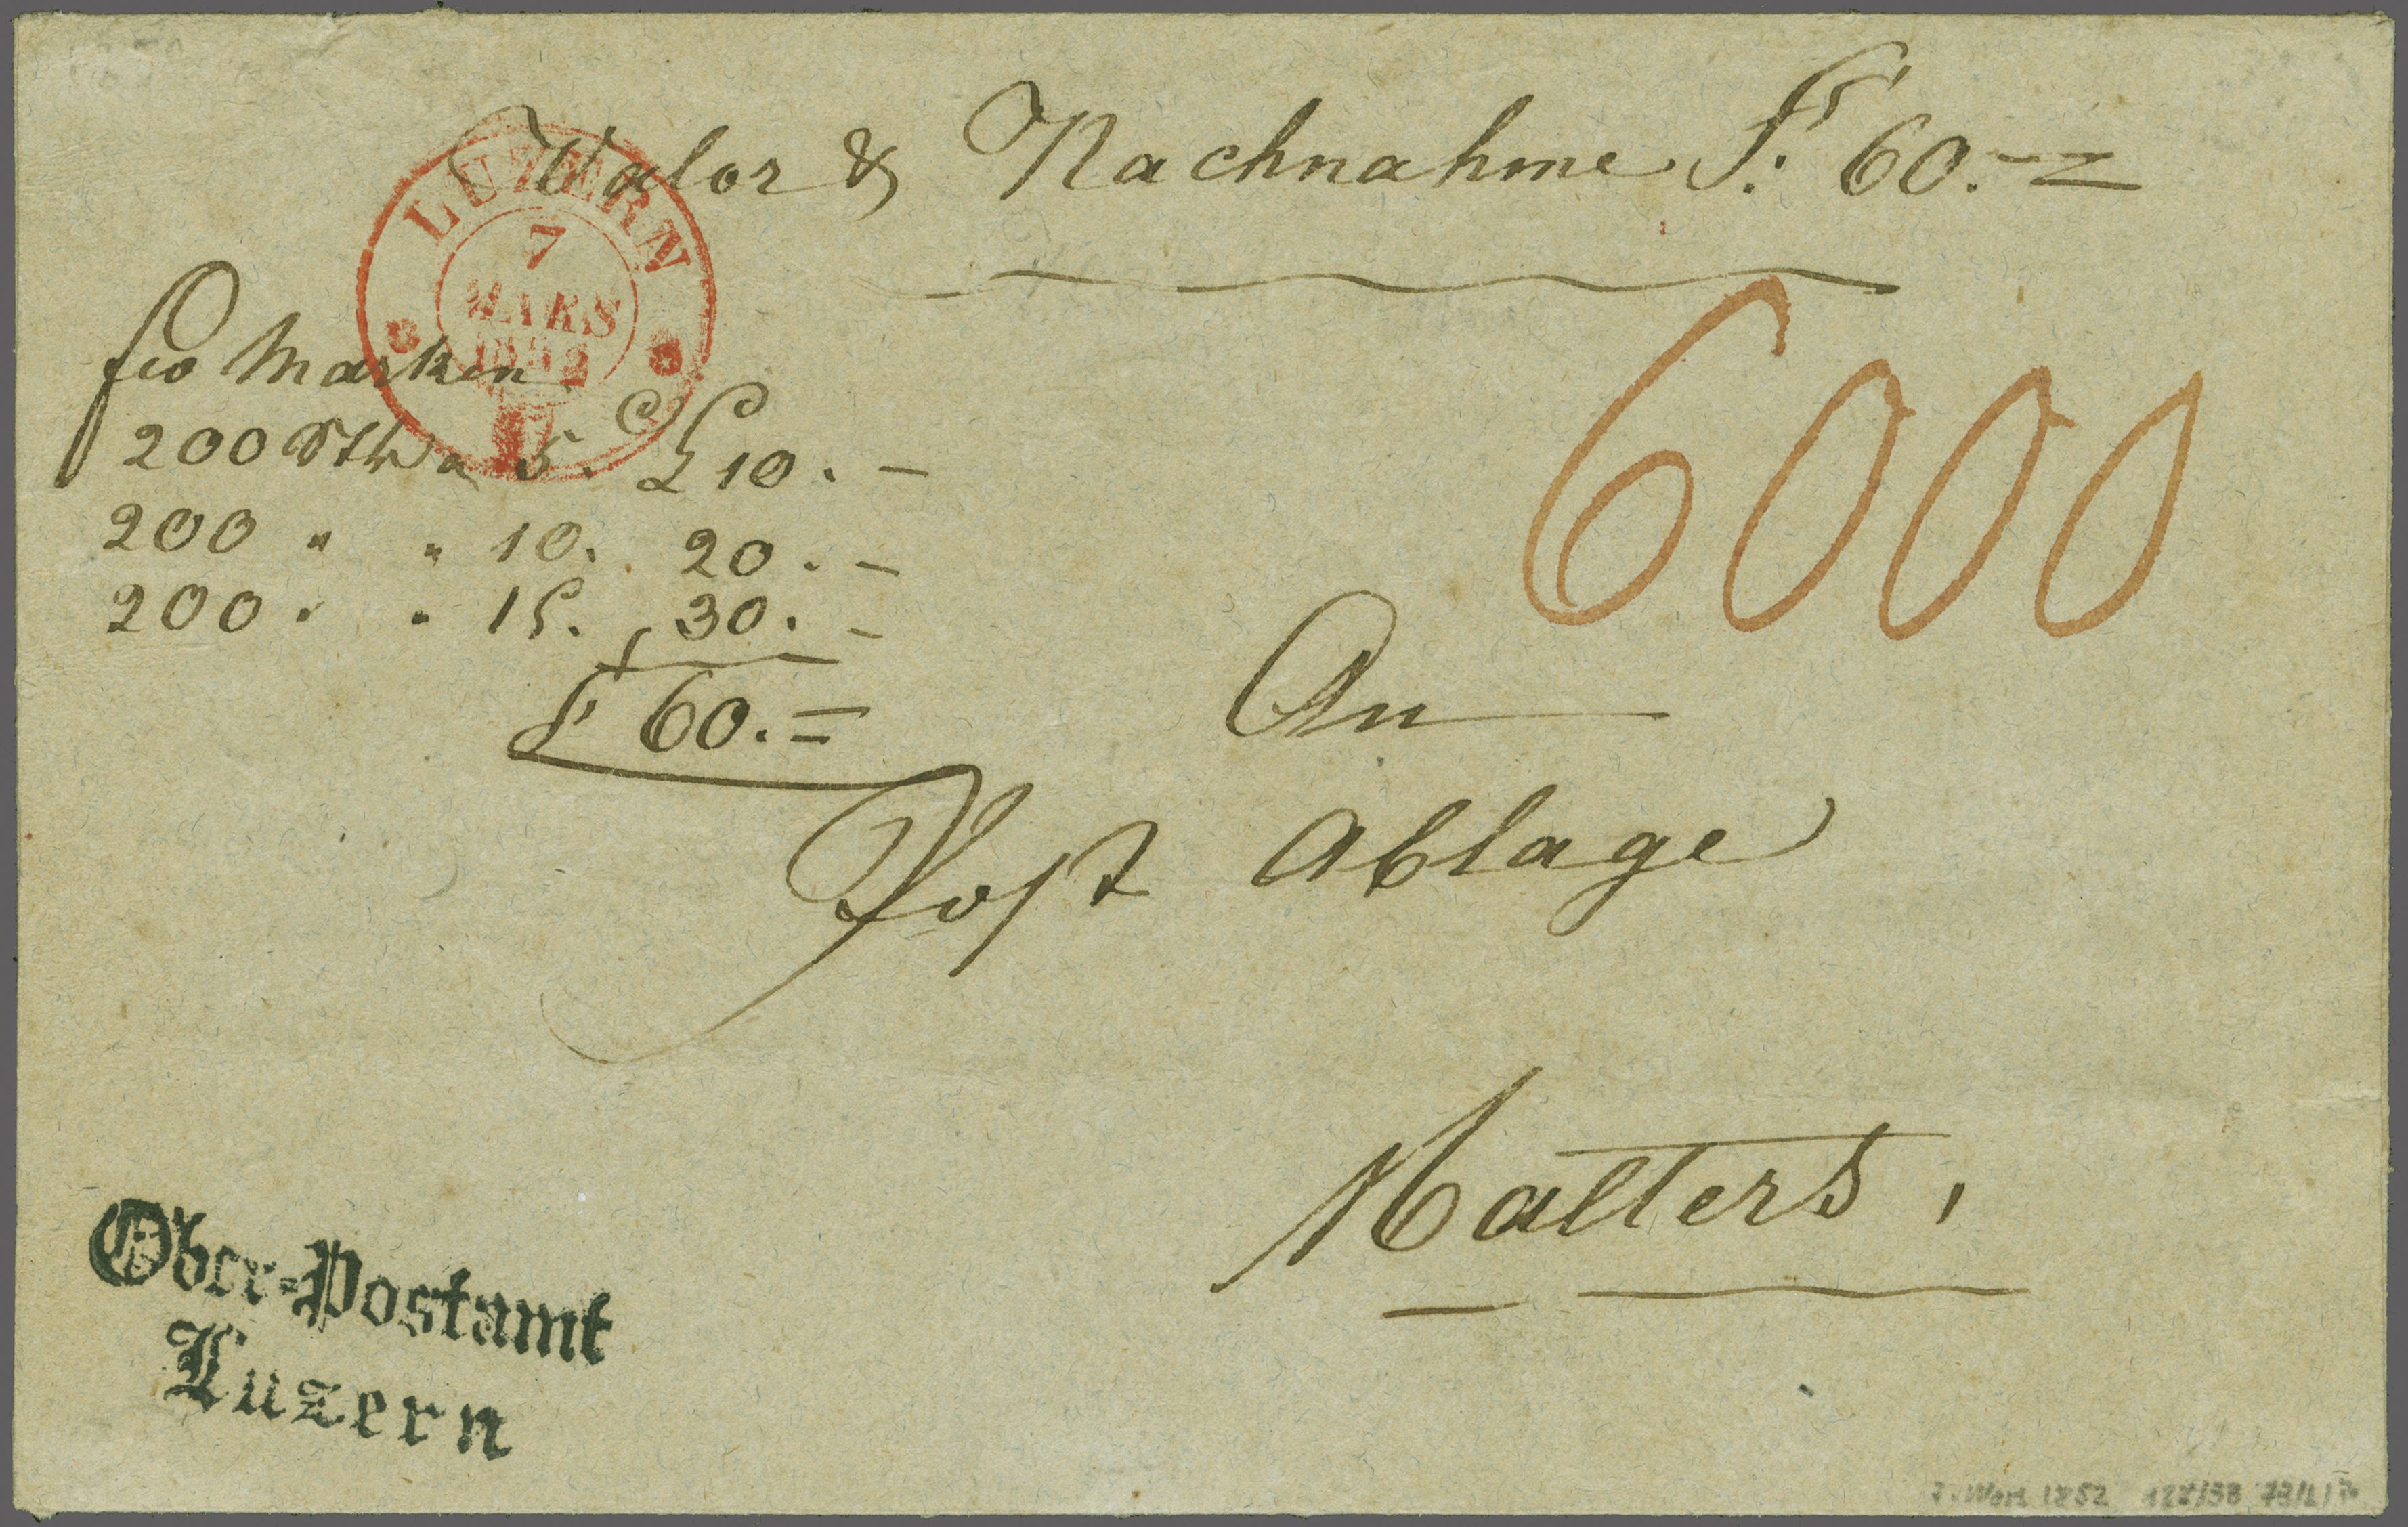 Valor & Nachnahme Fr: 60.--
LUZERN
7
MARS
1852
6000
fco Marken
200 Stk a 5. C Fr 10. -
200 " " 10. 20. -
200 " " 15. 30. -
Fr 60. =
An
Post Ablage
Malters,
Ober-Postamt
Luzern
7. März 1852